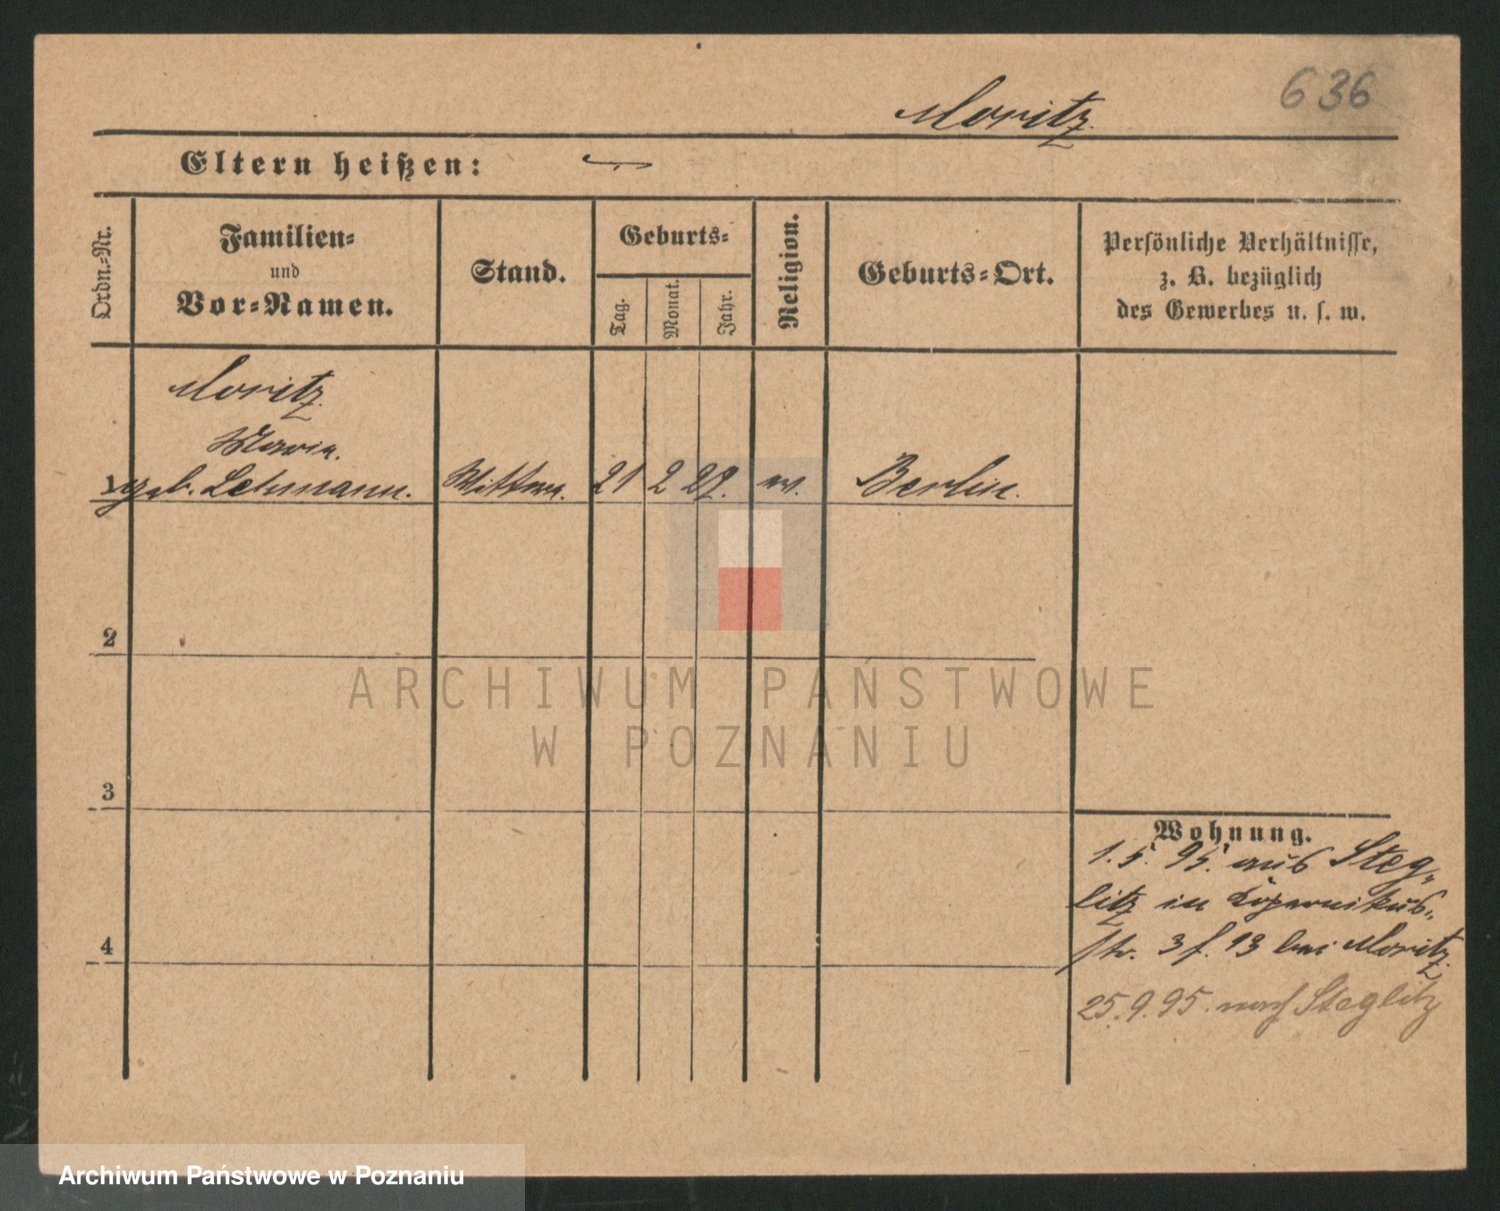 636
Moritz.
Eltern heißen: —
Ordn.-Nr.
Familien-
und
Vor-Namen.
Stand.
Geburts-
Tag.
Monat.
Jahr.
Religion.
Geburts-Ort.
Persönliche Verhältnisse,
z. B. bezüglich
des Gewerbes u. s. w.
Moritz.
Maria.
1 geb. Lehmann. Wittwe. 21 2 27. ev. Berlin.
2
3
4
Wohnung.
1. 5. 95. aus Steg-
litz in Kopernikus-
str. 3 f. 13 bei Moritz.
25. 9. 95. nach Steglitz
ARCHIWUM PAŃSTWOWE
W POZNANIU
Archiwum Państwowe w Poznaniu